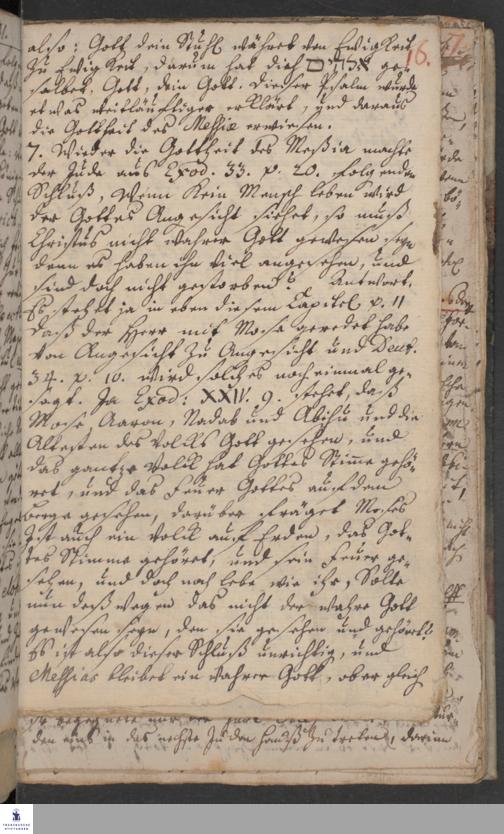 also: Gott dein Stuhl währet von Ewigkeit
zu Ewigkeit, darum hat dich אלהים ge-
salbet, Gott, dein Gott. Dieser Psalm wurde
etwas weitläufftiger erklärt, und daraus
die Gottheit des Messiæ erwiesen.
7. Wieder die Gottheit des Meßiæ machte
der Jude aus Exod. 33. v. 20. folgenden
Schluß, Wenn kein Mensch leben wird
der Gottes Angesicht siehet, so muß
Christus nicht wahrer Gott gewesen seyn
denn es haben ihn viel angesehen, und
sind doch nicht gestorben? Antwort.
Es stehet ja in eben diesem Capitel v. 11
daß der Herr mit Mose geredet habe
von Angesicht zu Angesicht und Deut.
34. v. 10. wird solches noch einmal ge-
sagt. Ja Exod: XXIV. 9. stehet, daß
Mose, Aaron, Nadab und Abihu und die
Ältesten des Volcks Gott gesehen, und
das gantze Volck hat Gottes Stimme gehö-
ret, und das Feuer Gottes auf dem
Berge gesehen, darüber fräget Moses
Ist auch ein Volck auf Erden, das Got-
tes Stimme gehöret, und sein Feuer ge-
sehen, und doch noch lebe wie ihr, Solte
nun deßwegen das nicht der wahre Gott
gewesen seyn, den sie gesehen und gehöret?
Es ist also dieser Schluß unrichtig, und
Messias bleibet ein wahrer Gott, ob er gleich
16.
7.
den eins in das nechste Juden Hauß zu treten, darinn
FRANCKESCHE
STIFTUNGEN